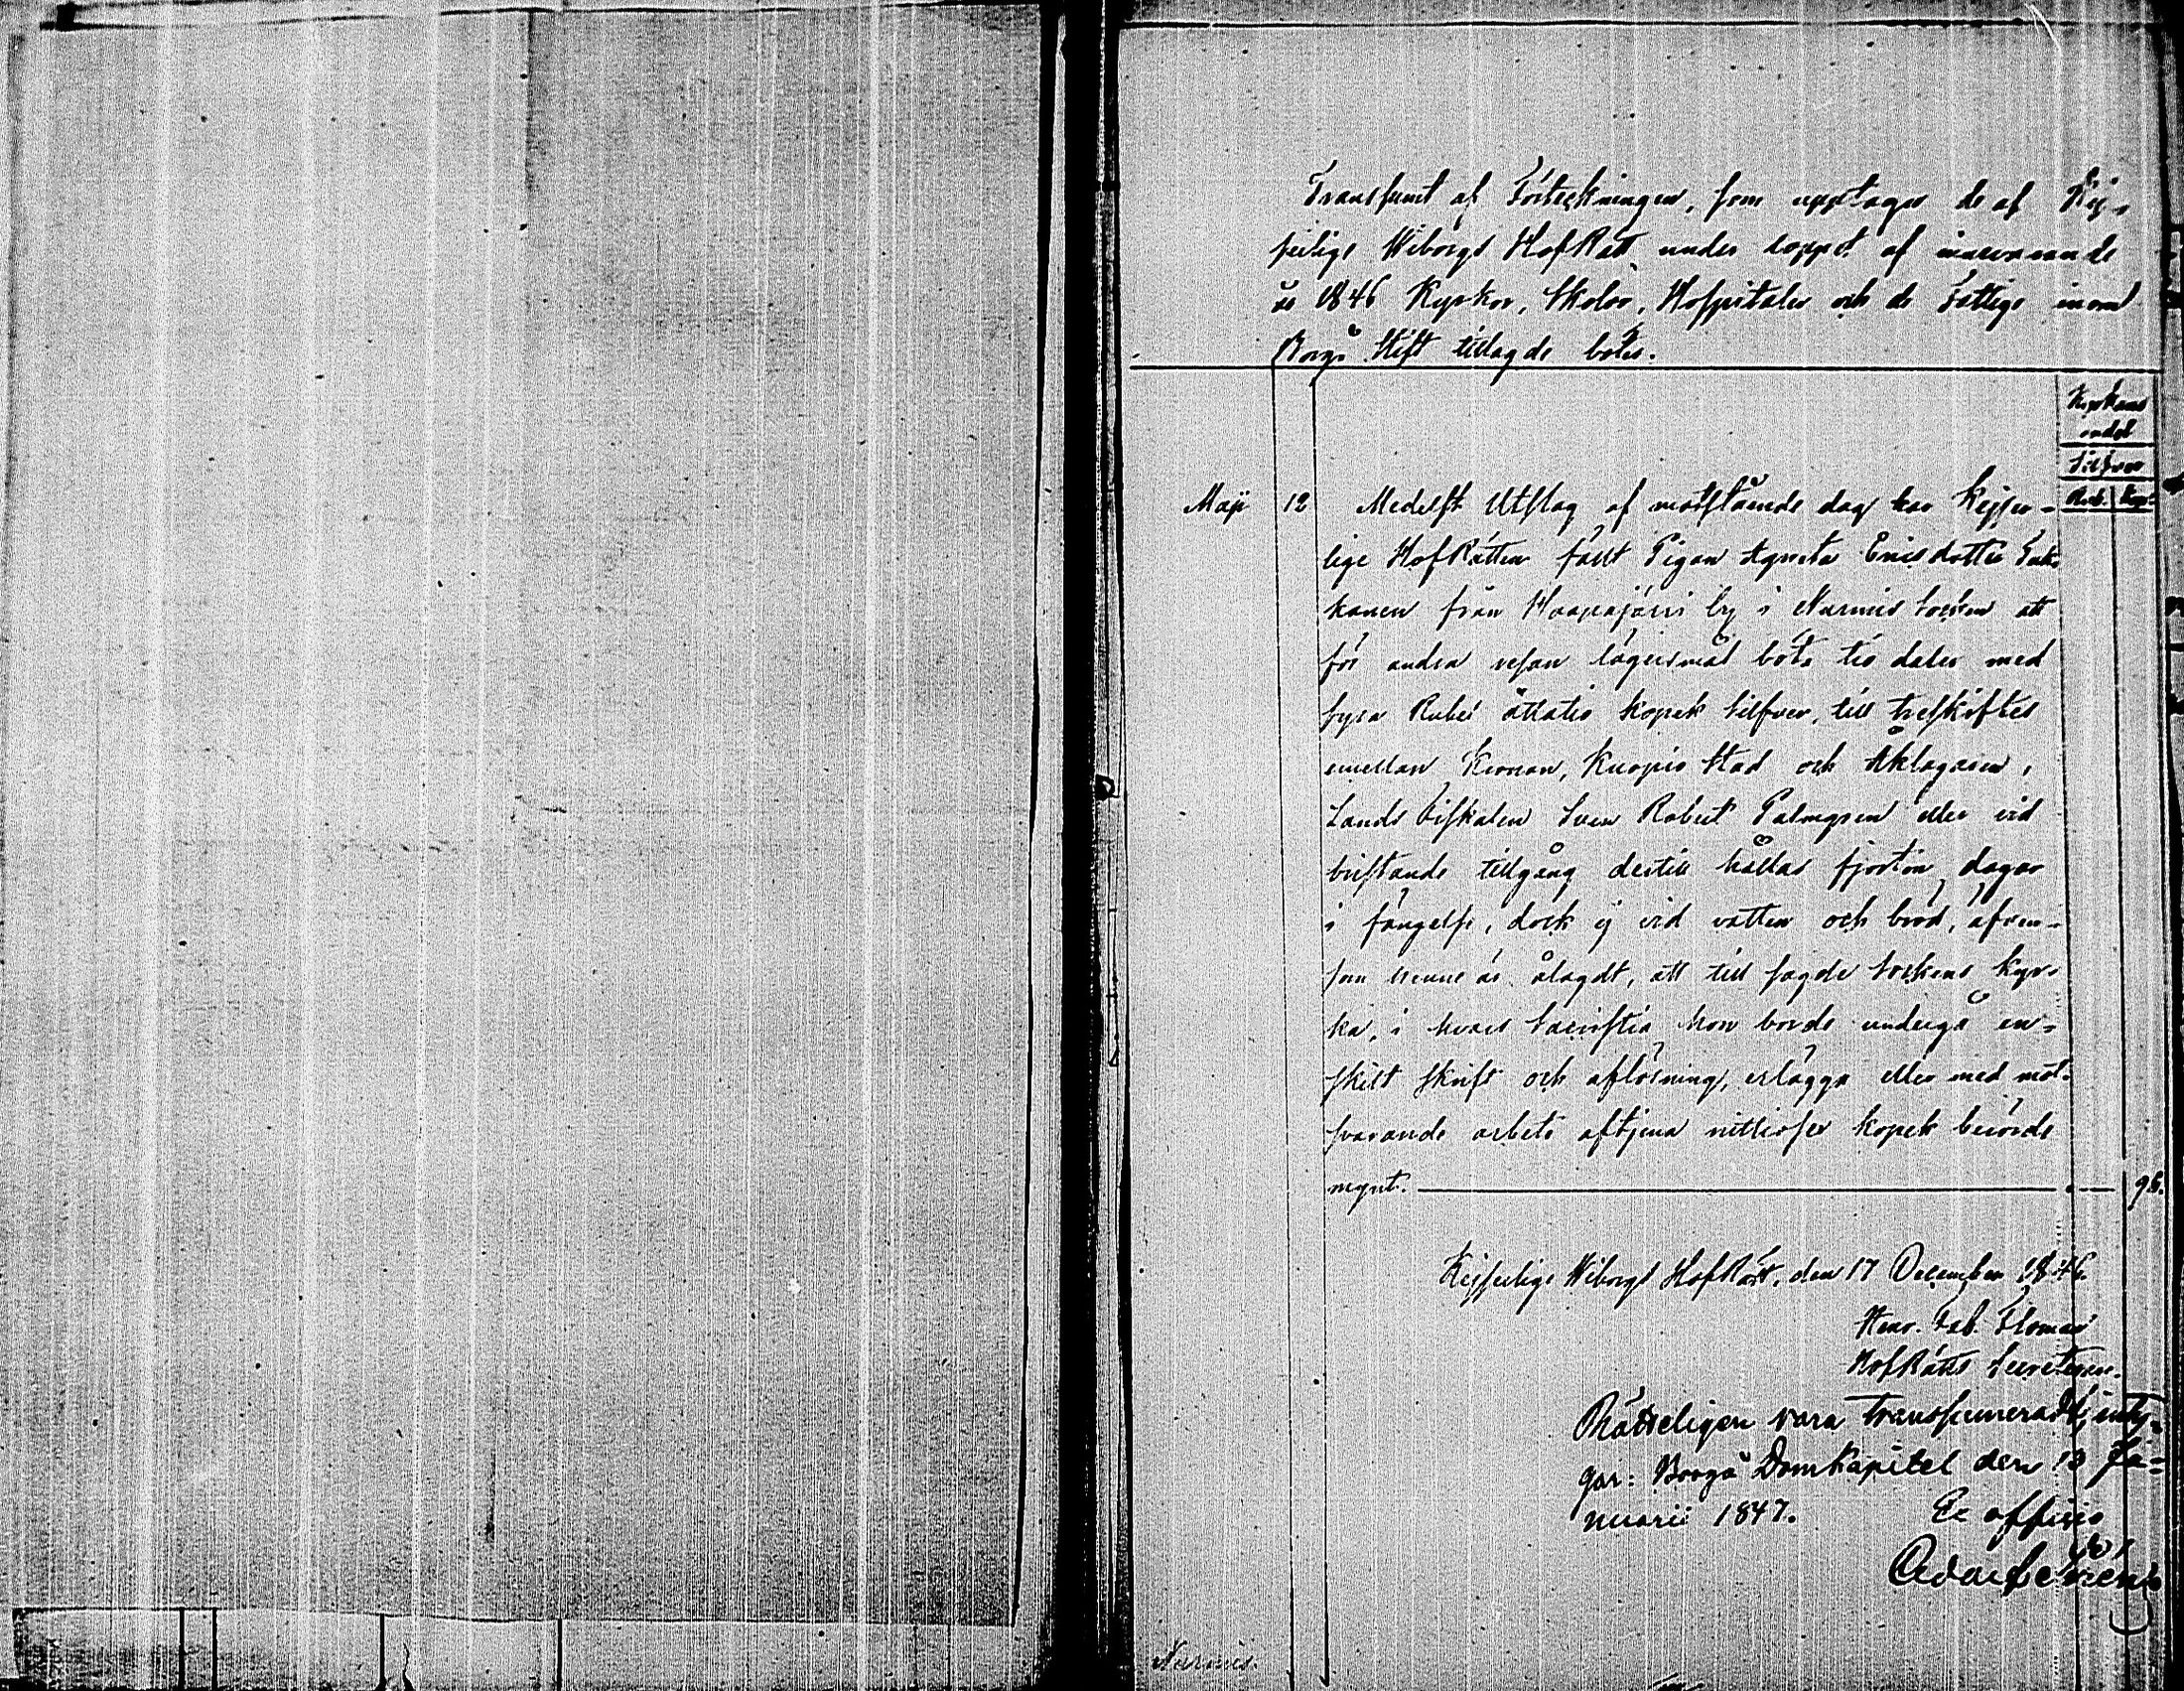 Transsumt af Förteckningen, som upptager de af Kej-
serlige Wiborgs HofRätt under loppet af innevarande
år 1846 Kyrkor, Skolor, Hospitaler och de Fattige inom
Borgå Stift tillagde böter.
Kyrkans
andel
Silfver
Rub. Kop.
Maji 12 Medelst Utslag af motstående dag har Kejser-
lige HofRätten fällt Pigan Agneta Ericsdotter
kanen från Haapajärvi by i Nurmis Socken att
för andra resan lägersmål böta tio daler med
fyra Rubel åttatio kopek silfver, till treskiftes
emellan Kronan, Kuopio Stad och Åklagaren,
Lands Fiskalen Sven Robert Palmgren eller vid
bristande tillgång dertill hållas fjorton dagar
i fängelse, dock ej vid vatten och bröd, äfven-
som henne är ålagdt, att till sagde Sockens Kyr-
ka, i hvars Sacristia hon borde undergå en-
skilt skrift och aflösning, erlägga eller med mot-
svarande arbete aftjena nittiosex kopek berörde
mynt. 96.
Kejserlige Wiborgs HofRätt, den 17 December 1846.
Henr. Fab. Floman
HofRätts Secreterare.
Rätteligen vara transsumeradt, inty-
gar: Borgå Domkapitel den 13 Ja-
nuarii 1847. Ex officio
Nurmis.